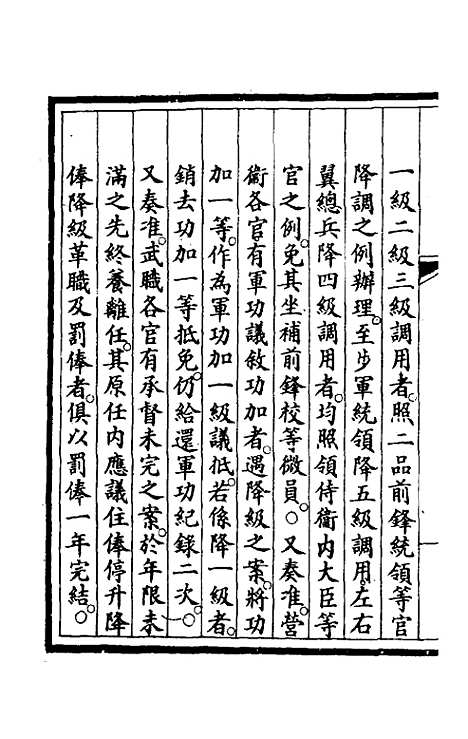 一級二級三級調用者。照二品前鋒統領等官
降調之例辦理。至步軍統領降五級調用。左右
翼總兵降四級調用者。均照領侍衛內大臣等
官之例。免其坐補前鋒校等微員。○又奏准。營
衛各官有軍功議敘功加者。遇降級之案。將功
加一等。作為軍功加一級議抵。若係降一級者。
銷去功加一等抵免。仍給還軍功紀錄二次。○
又奏准。武職各官有承督未完之案。於年限未
滿之先終養離任。其原任內應議住俸停升降
俸降級革職及罰俸者。俱以罰俸一年完結。○